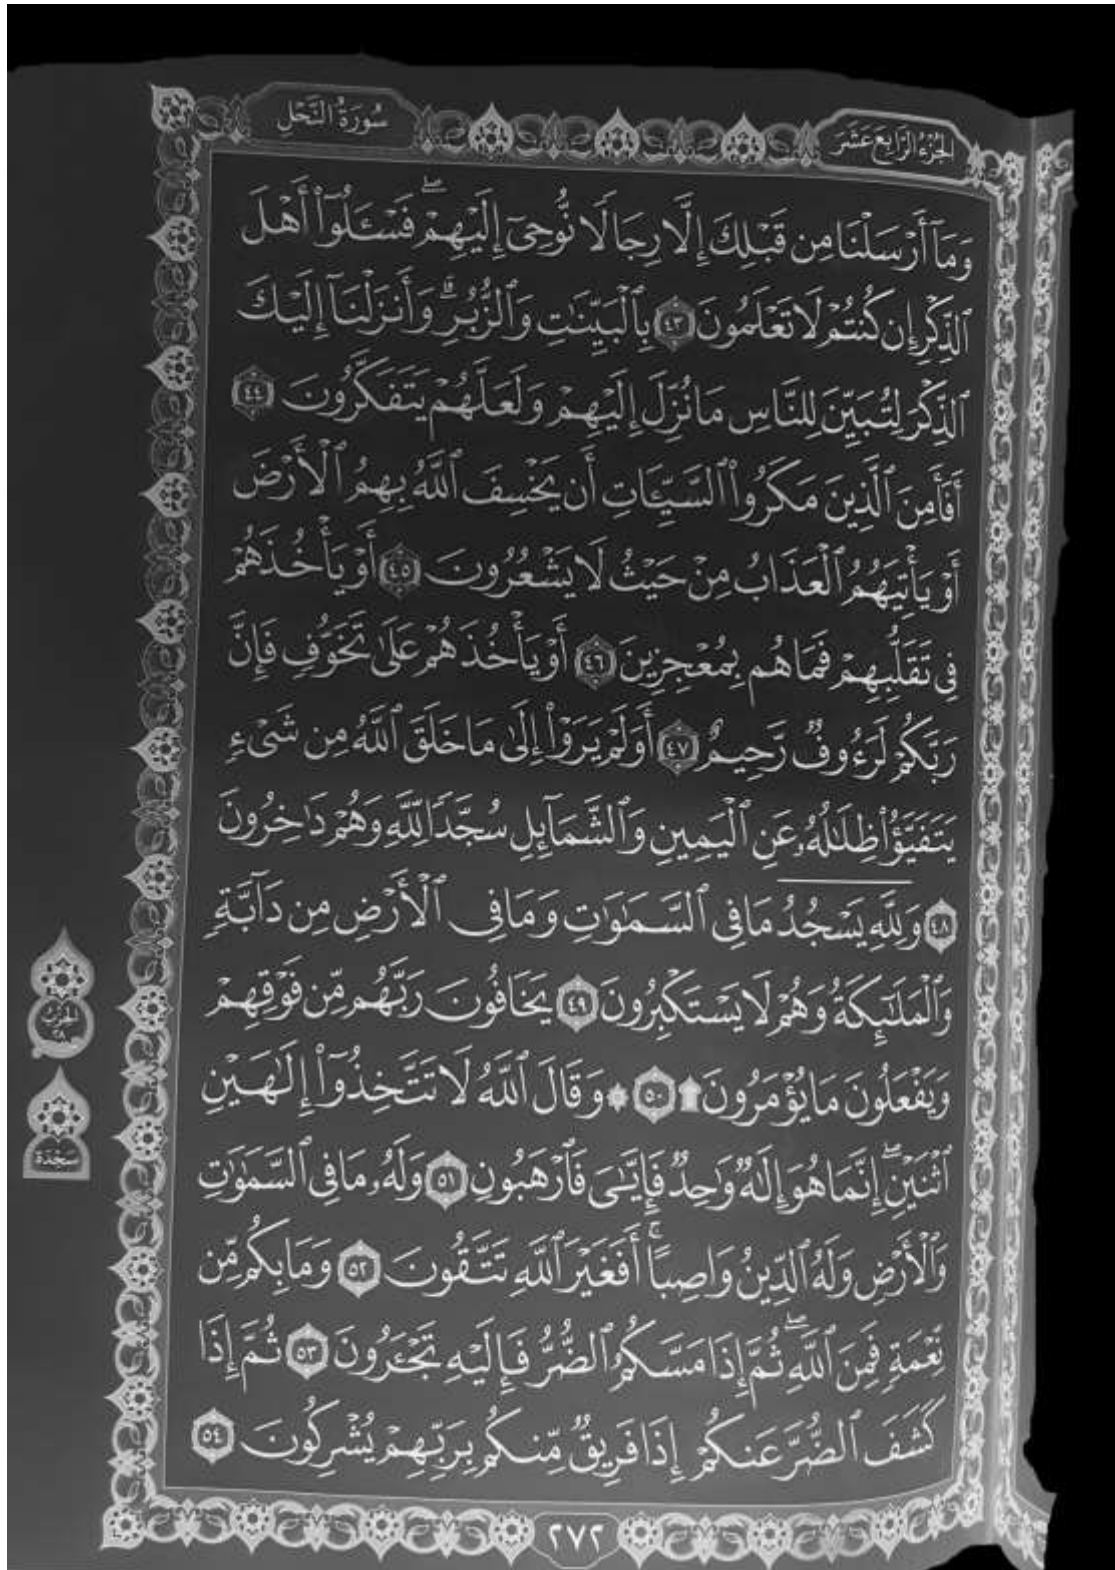 الجزء الرابع عشر
سورة النحل
وَمَآ أَرْسَلْنَا مِن قَبْلِكَ إِلَّا رِجَالًا نُّوحِىٓ إِلَيْهِمْ ۖ فَسْـَٔلُوٓا۟ أَهْلَ
ٱلذِّكْرِ إِن كُنتُمْ لَا تَعْلَمُونَ ٤٣ بِٱلْبَيِّنَـٰتِ وَٱلزُّبُرِ ۗ وَأَنزَلْنَآ إِلَيْكَ
ٱلذِّكْرَ لِتُبَيِّنَ لِلنَّاسِ مَا نُزِّلَ إِلَيْهِمْ وَلَعَلَّهُمْ يَتَفَكَّرُونَ ٤٤
أَفَأَمِنَ ٱلَّذِينَ مَكَرُوا۟ ٱلسَّيِّـَٔاتِ أَن يَخْسِفَ ٱللَّهُ بِهِمُ ٱلْأَرْضَ
أَوْ يَأْتِيَهُمُ ٱلْعَذَابُ مِنْ حَيْثُ لَا يَشْعُرُونَ ٤٥ أَوْ يَأْخُذَهُمْ
فِى تَقَلُّبِهِمْ فَمَا هُم بِمُعْجِزِينَ ٤٦ أَوْ يَأْخُذَهُمْ عَلَىٰ تَخَوُّفٍ فَإِنَّ
رَبَّكُمْ لَرَءُوفٌ رَّحِيمٌ ٤٧ أَوَلَمْ يَرَوْا۟ إِلَىٰ مَا خَلَقَ ٱللَّهُ مِن شَىْءٍ
يَتَفَيَّؤُا۟ ظِلَـٰلُهُۥ عَنِ ٱلْيَمِينِ وَٱلشَّمَآئِلِ سُجَّدًا لِّلَّهِ وَهُمْ دَٰخِرُونَ
٤٨ وَلِلَّهِ يَسْجُدُ مَا فِى ٱلسَّمَـٰوَٰتِ وَمَا فِى ٱلْأَرْضِ مِن دَآبَّةٍ
وَٱلْمَلَـٰٓئِكَةُ وَهُمْ لَا يَسْتَكْبِرُونَ ٤٩ يَخَافُونَ رَبَّهُم مِّن فَوْقِهِمْ
وَيَفْعَلُونَ مَا يُؤْمَرُونَ ۩ ٥٠ ۞ وَقَالَ ٱللَّهُ لَا تَتَّخِذُوٓا۟ إِلَـٰهَيْنِ
ٱثْنَيْنِ ۖ إِنَّمَا هُوَ إِلَـٰهٌ وَٰحِدٌ فَإِيَّـٰىَ فَٱرْهَبُونِ ٥١ وَلَهُۥ مَا فِى ٱلسَّمَـٰوَٰتِ
وَٱلْأَرْضِ وَلَهُ ٱلدِّينُ وَاصِبًا ۚ أَفَغَيْرَ ٱللَّهِ تَتَّقُونَ ٥٢ وَمَا بِكُم مِّن
نِّعْمَةٍ فَمِنَ ٱللَّهِ ۖ ثُمَّ إِذَا مَسَّكُمُ ٱلضُّرُّ فَإِلَيْهِ تَجْـَٔرُونَ ٥٣ ثُمَّ إِذَا
كَشَفَ ٱلضُّرَّ عَنكُمْ إِذَا فَرِيقٌ مِّنكُم بِرَبِّهِمْ يُشْرِكُونَ ٥٤
سجدة
٢٧٢